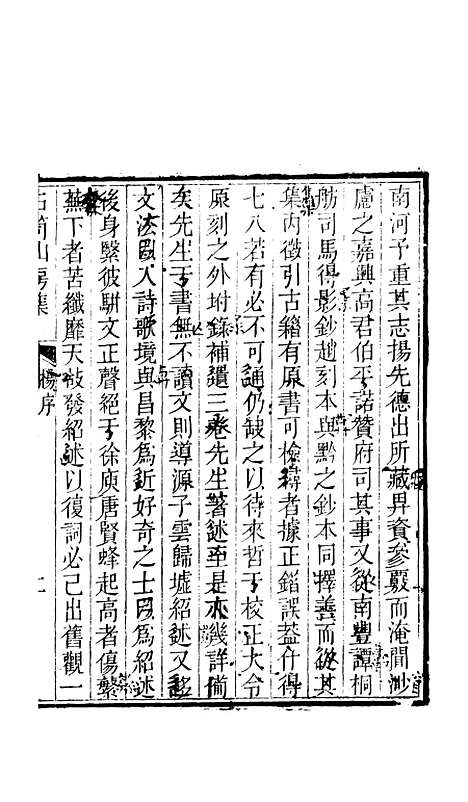 南河予重其志揚先德出所藏畀資參覈而淹間渺
慮之嘉興高君伯平諾贊府司其事又從南豐譚桐
舫司馬得影鈔趙刻本與黔之鈔本同擇善而從其
集內徵引古籍有原書可檢得者據正錯誤葢什得
七八若有必不可通仍缺之以待來哲于校正大令
原刻之外坿錄補遺三卷先生著述至是亦幾詳備
矣先生于書無不讀文則導源子雲歸墟紹述又
文法因人詩歌境與昌黎爲近好奇之士因爲紹述
後身繄彼駢文正聲絕于徐庾唐賢蜂起高者傷繁
蕪下者苦纖靡天敎發紹述以復詞必己出舊觀一
山房集
楊序